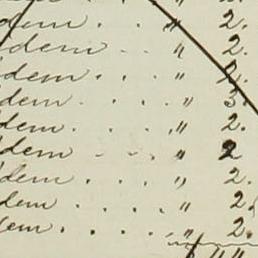 dem . . . " 2.
dem . . . " 2.
dem . . . "
dem . . . . " 3.
dem . . . . " 2.
dem . . . " 2
dem . . . . " 2.
dem . . . . " 2.
dem . . . . " 2.